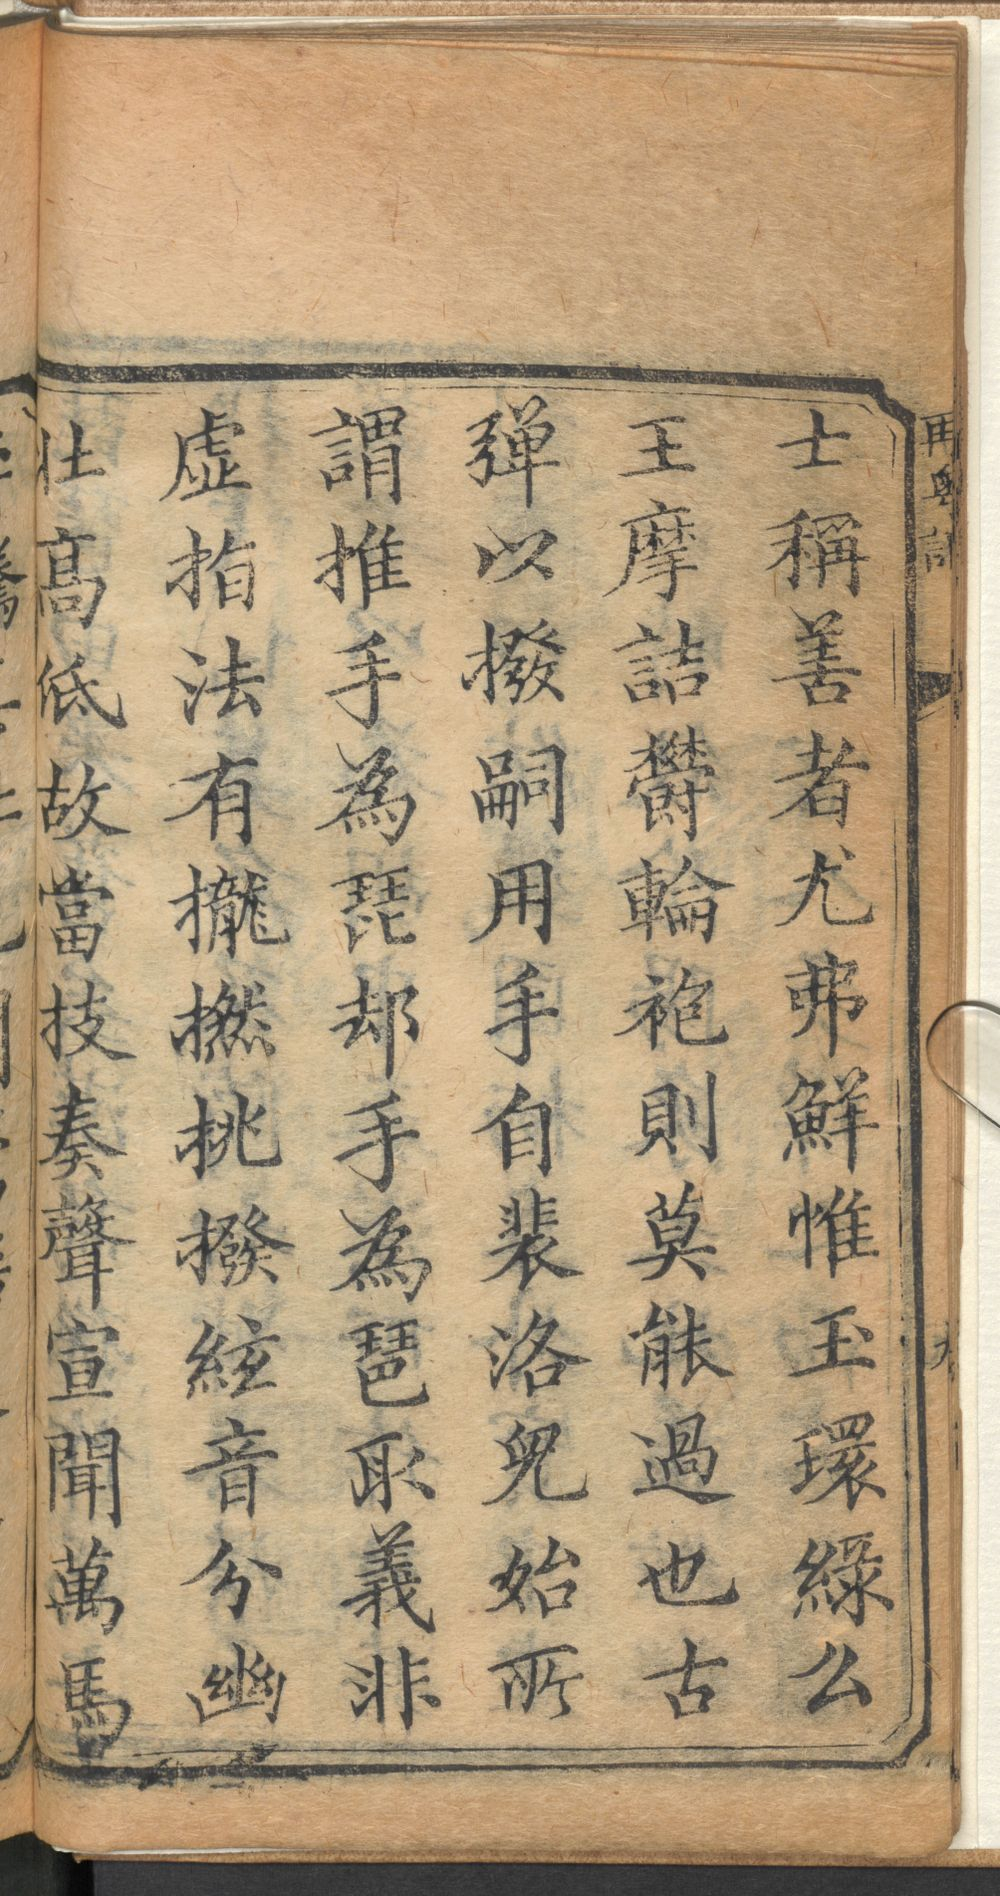 士稱善者尤弗鮮惟玉環綠么
王摩詰欝輪袍則莫能過也古
彈以撥嗣用手自裴洛兒始所
謂推手為琵却手為琶取義非
虛指法有攏撚挑撥絃音分幽
壯高低故當技奏聲宣聞萬馬